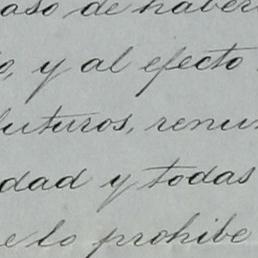 aso de haber
o, y al efecto
futuros, renun
dad y todas
e lo prohibe